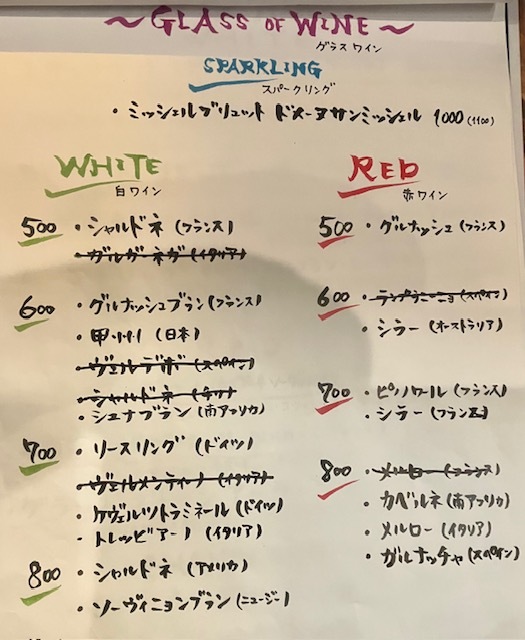 ~ GLASS OF WINE ~
グラスワイン
SPARKLING
スパークリング
・ミッシェルブリュット ドメーヌサンミッシェル 1000(1100)
WHITE
白ワイン
500 ・シャルドネ (フランス)
・ガルガーネガ (イタリア)
600 ・グルナッシュブラン (フランス)
・甲州 (日本)
・ヴェルデホ (スペイン)
・シャルドネ (チリ)
・シュナブラン (南アフリカ)
700 ・リースリング (ドイツ)
・ヴェルメンティーノ (イタリア)
・ケヴェルツトラミネール (ドイツ)
・トレッビアーノ (イタリア)
800 ・シャルドネ (アメリカ)
・ソーヴィニョンブラン (ニュージー)
RED
赤ワイン
500 ・グルナッシュ (フランス)
600 ・テンプラニーニョ (スペイン)
・シラー (オーストラリア)
700 ・ピノノワール (フランス)
・シラー (フランス)
800 ・メルロー (フランス)
・カベルネ (南アフリカ)
・メルロー (イタリア)
・ガルナッチャ (スペイン)